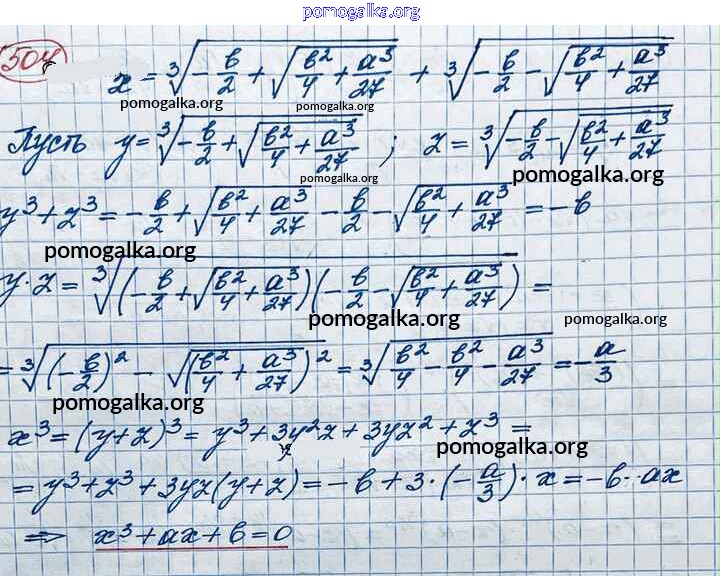 pomogalka.org
504
x = ∛(-b/2 + √(b²/4 + a³/27)) + ∛(-b/2 - √(b²/4 + a³/27))
pomogalka.org pomogalka.org
Пусть y = ∛(-b/2 + √(b²/4 + a³/27)) ; z = ∛(-b/2 - √(b²/4 + a³/27))
pomogalka.org pomogalka.org
y³ + z³ = -b/2 + √(b²/4 + a³/27) - b/2 - √(b²/4 + a³/27) = -b
pomogalka.org
y·z = ∛((-b/2 + √(b²/4 + a³/27))(-b/2 - √(b²/4 + a³/27))) =
pomogalka.org pomogalka.org
= ∛((-b/2)² - √(b²/4 + a³/27)²) = ∛(b²/4 - b²/4 - a³/27) = -a/3
pomogalka.org
x³ = (y+z)³ = y³ + 3y²z + 3yz² + z³ =
pomogalka.org
= y³ + z³ + 3yz(y+z) = -b + 3·(-a/3)·x = -b - ax
⇒ x³ + ax + b = 0